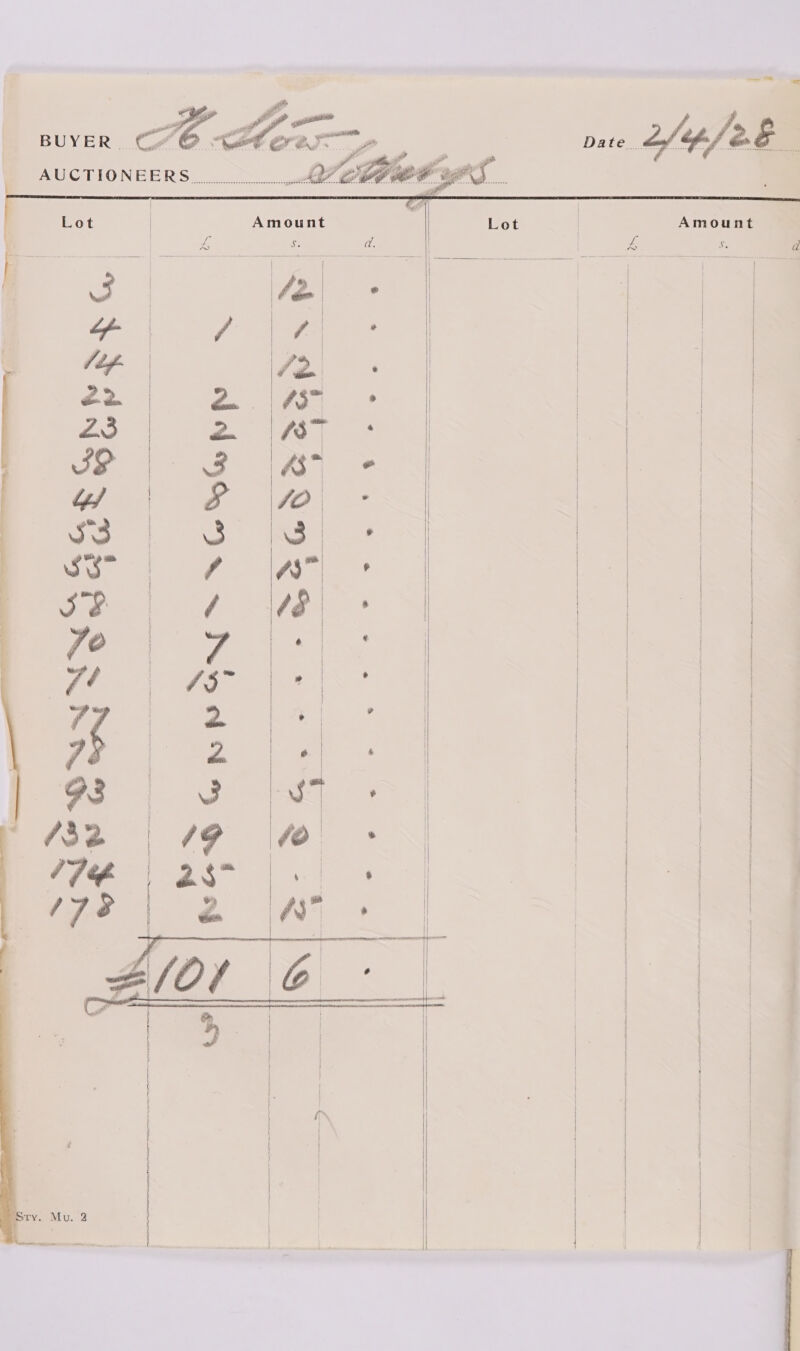 BUYER H Stow Date 2/4/28
AUCTIONEERS Sothebys
Lot Amount Lot Amount
£ s. d. £ s. d
3 12 •
4 1 1 •
14 12 •
22 2 15 •
23 2 15 •
38 3 15 •
41 8 10 •
53 3 3 •
55 1 15 •
58 1 18 •
70 7 • •
71 15 • •
77 2 • •
78 2 • •
93 3 5 •
132 19 10 •
174 25 • •
178 2 15 •
£101 6 •
3
Sty. Mu. 2